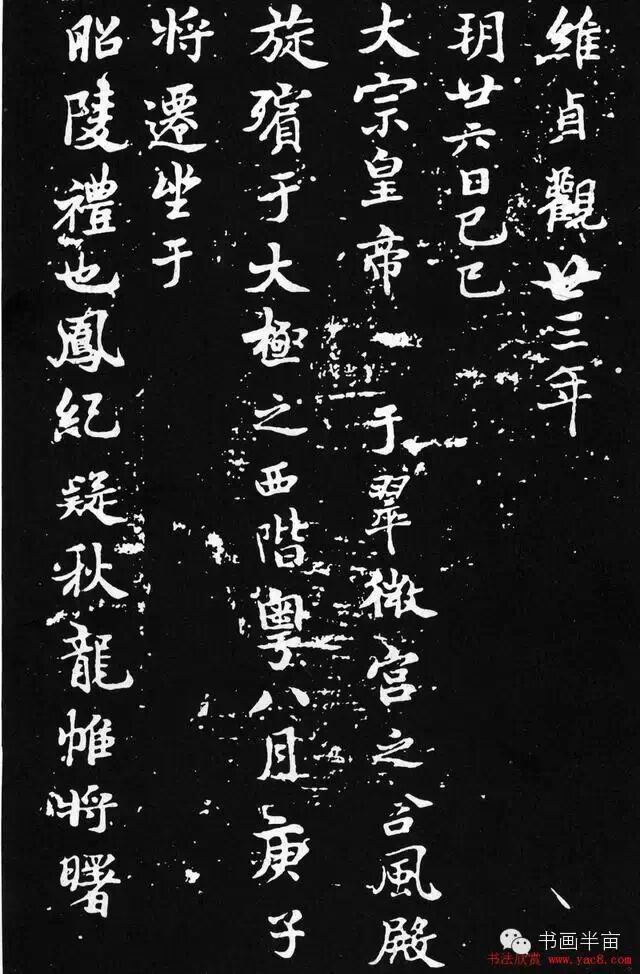 維貞觀廿三年
玥廿六日己巳
大宗皇帝于翠微宮之含風殿
旋殯于大極之西階粵八月庚子
将遷坐于
昭陵禮也鳳紀疑秋龍帷将曙
书画半亩
书法欣赏 www.yac8.com